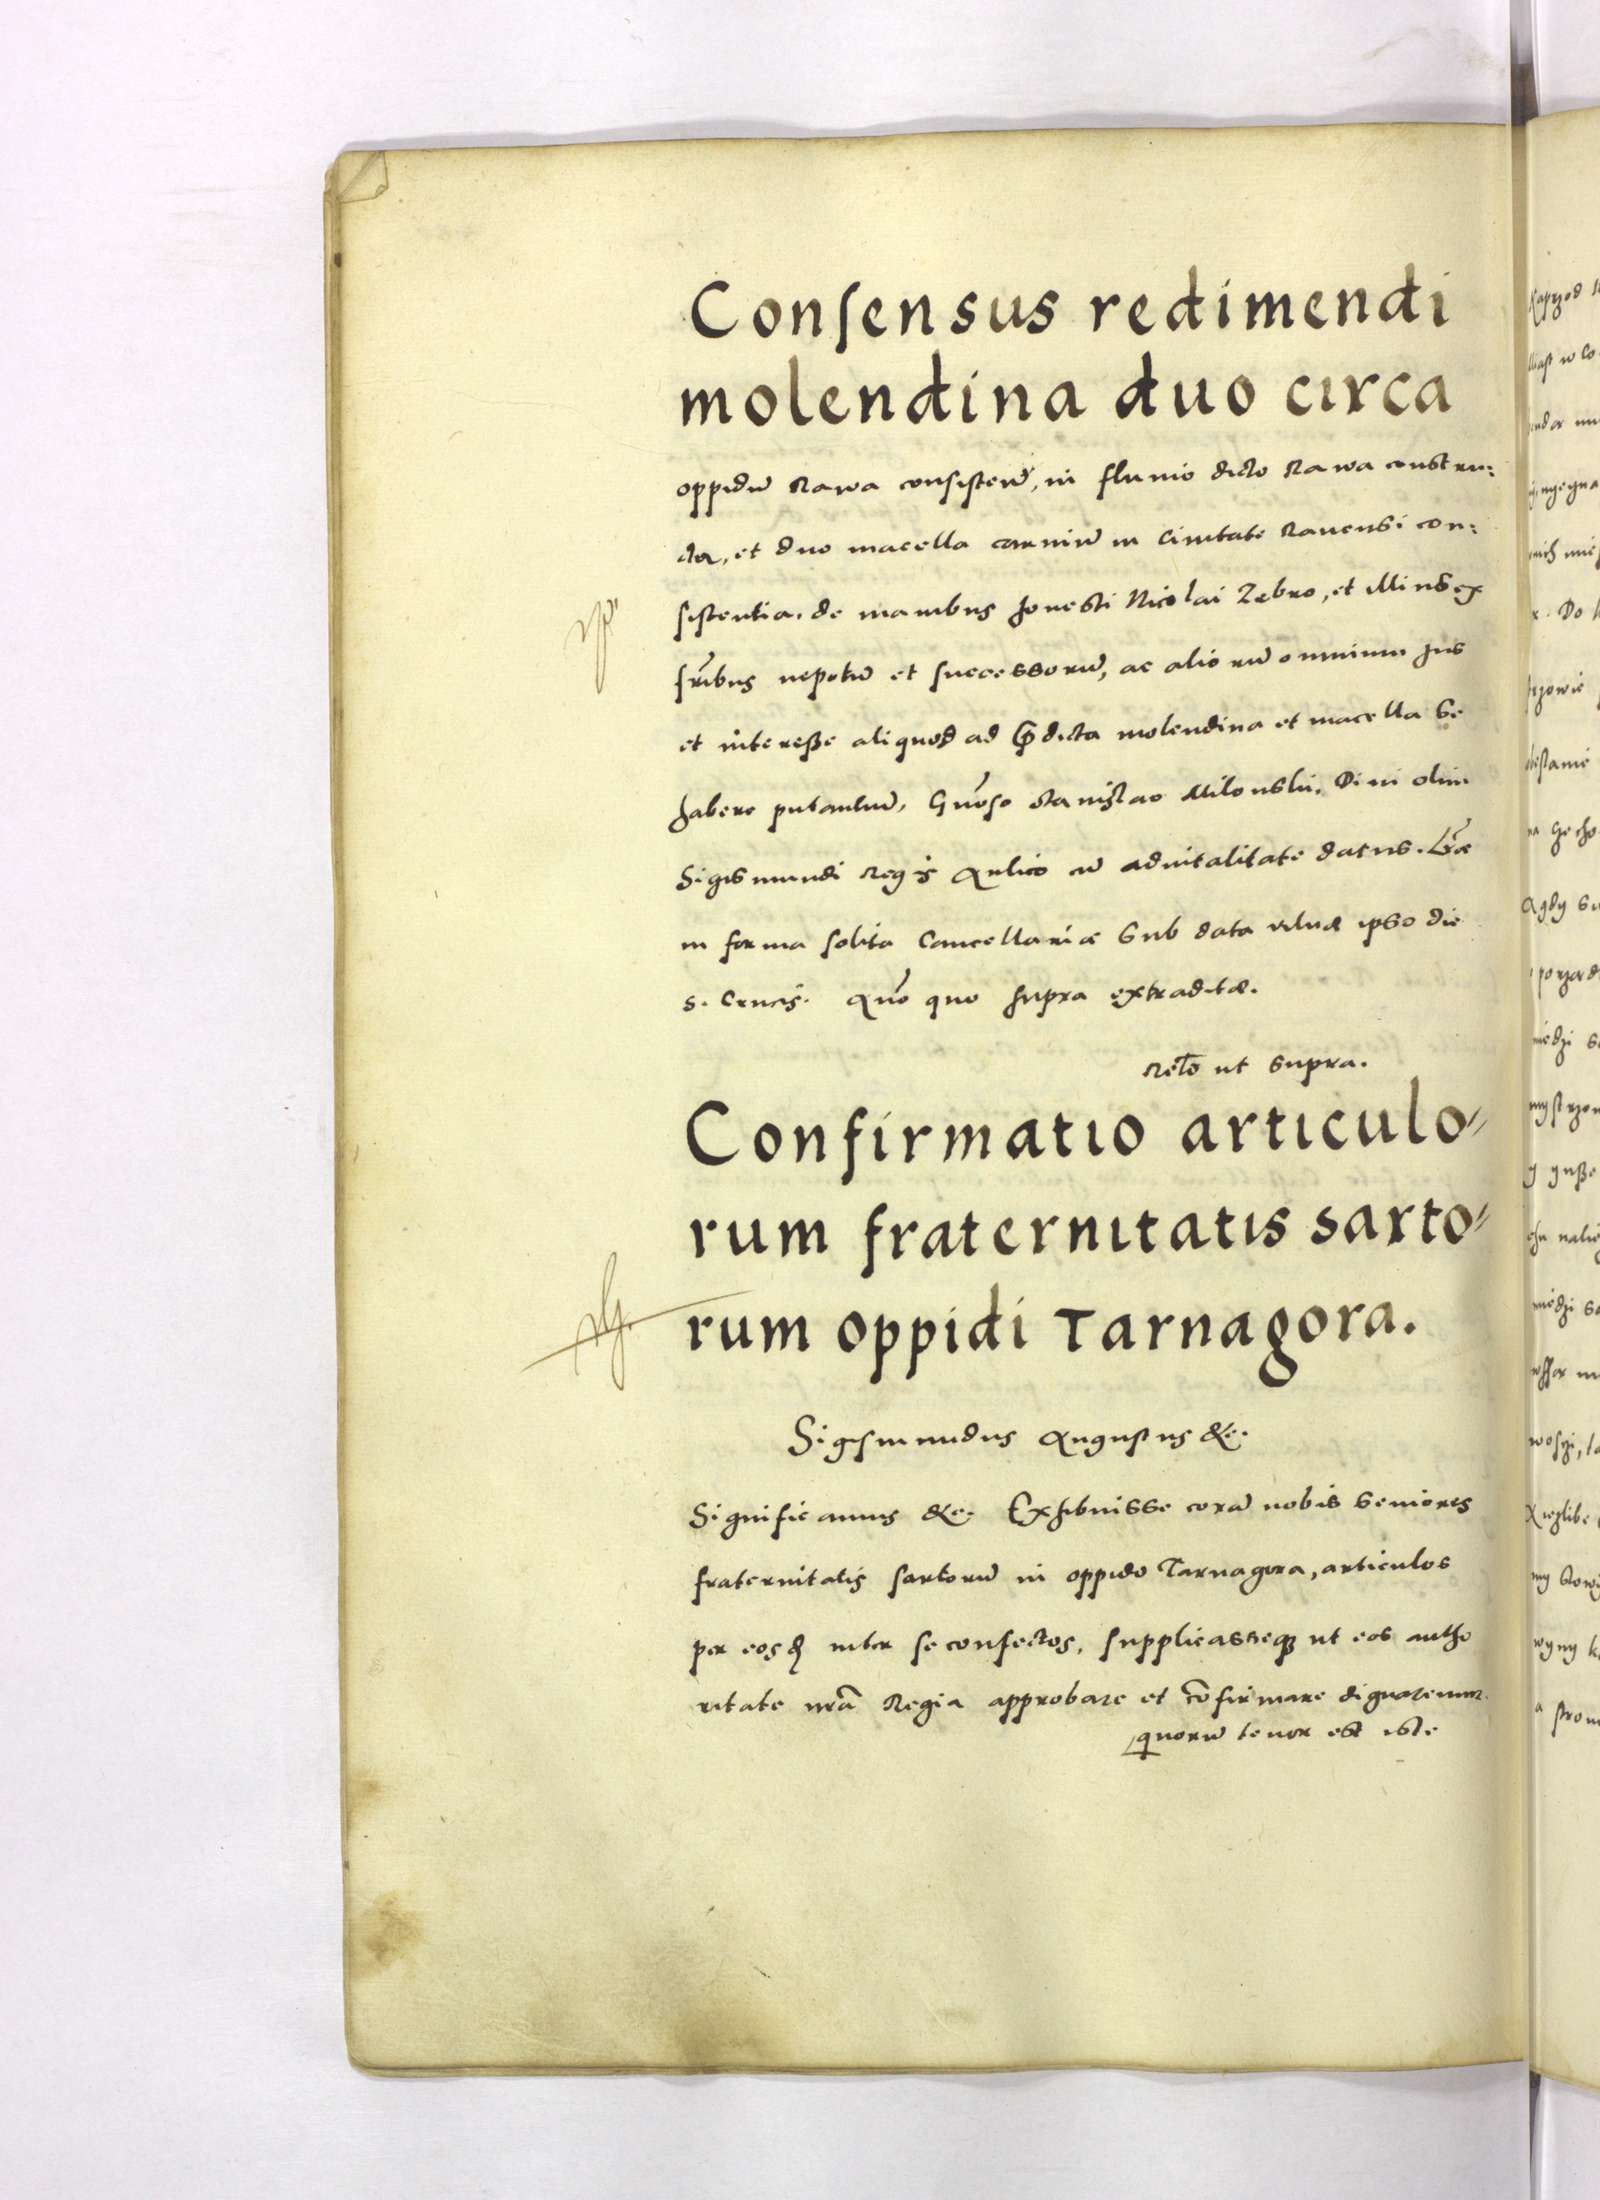 Consensus redimendi
molendina duo circa
oppidũ Rawa consistenẽ, in fluuio dicto Rawa constru:
cta, et duo macella carniũ in Ciuitate Rauensi con:
sistentia. de manibus honesti Nicolai Zebro, et
fr̃ibus nepotũ et successorũ, ac aliorũ omnium Jus
et interesse aliquod ad p̃dicta molendina et macella se
habere putantiũ, Gñoso Stanislao Milonski, Diui olim
Sigismundi Regis Aulico cũ aduitalitate datus. Lr̃æ
in forma solita Cancellariæ sub data Vilnæ ipso die
S. Crucis. Año quo supra extraditæ.
Relõ ut supra.
Confirmatio articulo-
rum fraternitatis sarto-
rum oppidi Tarnagora.
Sigismundus Augustus &c.
Significamus &c. Exhibuisse corã nobis seniores
fraternitatis sartorũ in oppido Tarnagora, articulos
per eosd inter se confectos, supplicasseq3 ut eos autho
ritate nr̃a Regia approbare et cõfirmare dignaremur.
quorũ tenor est iste